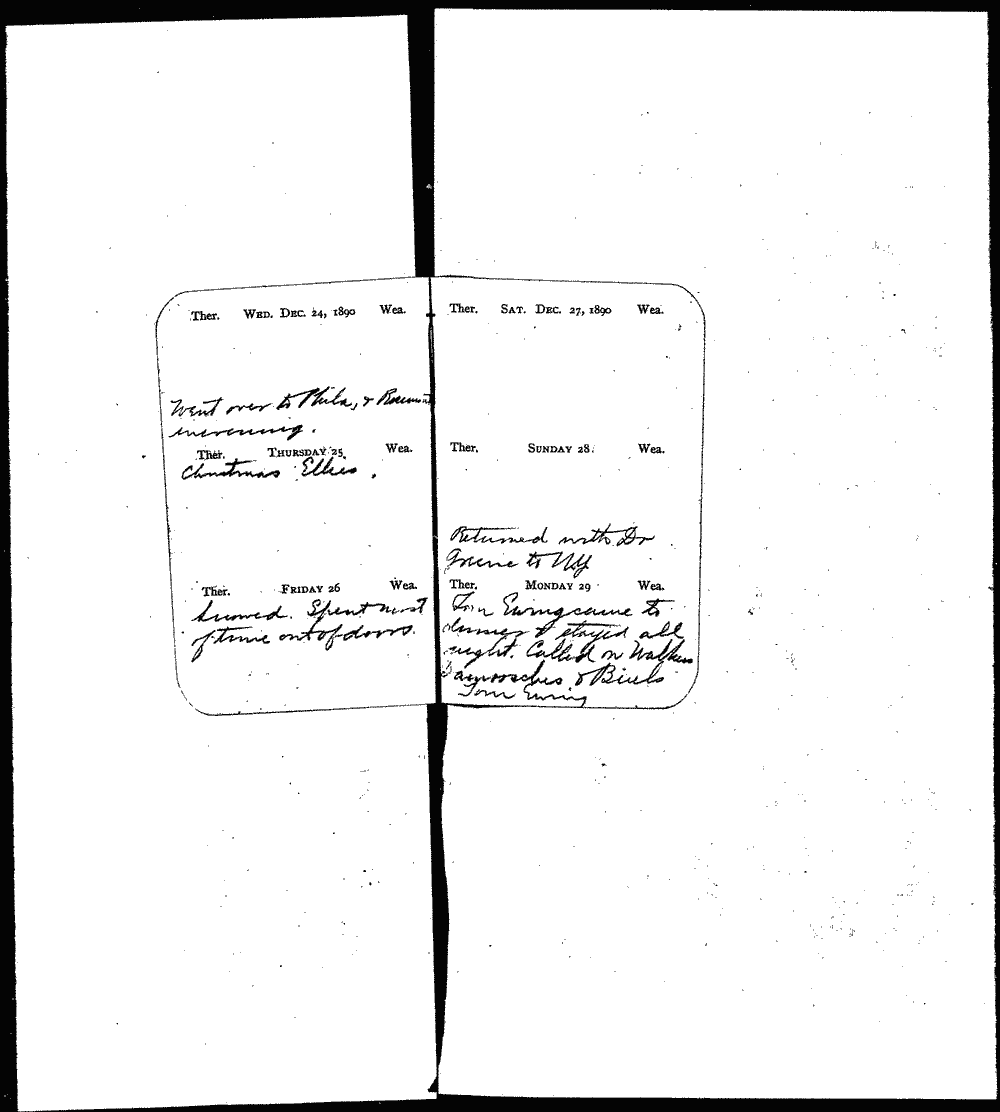 Ther. WED. DEC. 24, 1890 Wea.
Went over to Phila, & Rosemont
in evening.
Ther. THURSDAY 25 Wea.
Christmas Ellies.
Ther. FRIDAY 26 Wea.
Snowed. Spent most
of time out of doors.
Ther. SAT. DEC. 27, 1890 Wea.
Ther. SUNDAY 28. Wea.
Returned with Dr
Greene to NY
Ther. MONDAY 29 Wea.
Tom Ewing came to
dinner & stayed all
night. Called on
Damrosches &
Tom Ewing